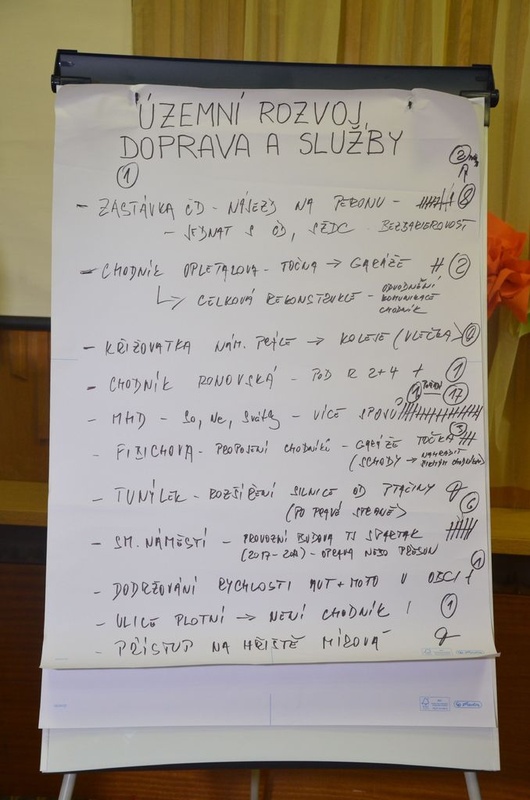 ÚZEMNÍ ROZVOJ,
DOPRAVA A SLUŽBY
1
- ZASTÁVKA ČD - NÁJEZD NA PERONU - 8
- JEDNAT S ČD, SŽDC - BEZBARIEROVOST
- CHODNÍK OPLETALOVA - TOČNA → GARÁŽE 2
CELKOVÁ REKONSTRUKCE - ODVODNĚNÍ
KOMUNIKACE
CHODNÍK
- KŘIŽOVATKA NÁM. PRÁCE → KOLEJE (VLEČKA)
- CHODNÍK RONOVSKÁ - POD R 2+4 1
- MHD - So, Ne, Svátky - VÍCE SPOJŮ 17
- FIBICHOVA - PROPOJENÍ CHODNÍKŮ - GARÁŽE TOČKA 3
(SCHODY → NAHRADIT
CHODNÍKEM)
- TUNÝLEK - ROZŠÍŘENÍ SILNICE OD PTAČINY
(PO PRAVÉ STRANĚ)
- SM. NÁMĚSTÍ - PROVOZNÍ BUDOVA TJ SPARTAK 6
- OPRAVA NEBO PŘESUN
- DODRŽOVÁNÍ RYCHLOSTI AUT + MOTO V OBCI 1
- ULICE PLOTNÍ → NENÍ CHODNÍK 1
- PŘÍSTUP NA HŘIŠTĚ MÍROVÁ